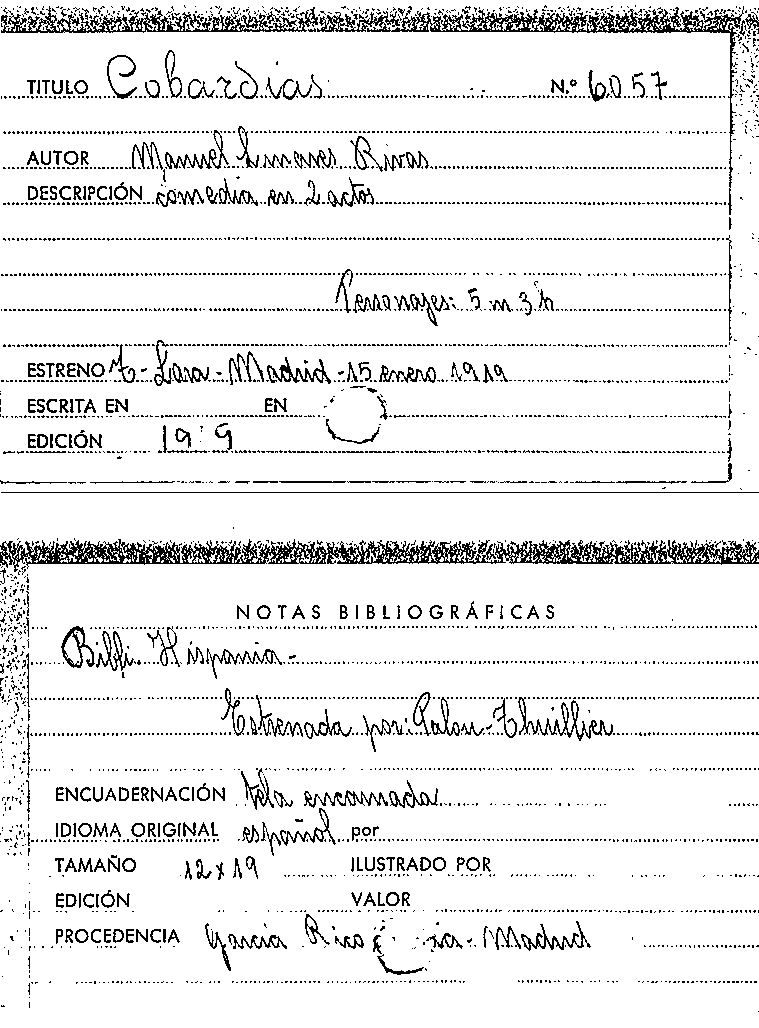 TITULO Cobardias N.º 6057
AUTOR Manuel Linares Rivas
DESCRIPCIÓN comedia en 2 actos
Personajes: 5 m 3 h
ESTRENO T- Lara - Madrid - 15 enero 1919
ESCRITA EN EN
EDICIÓN 19 9
NOTAS BIBLIOGRÁFICAS
Hispania -
Estrenada por: Palou - Thuillier
ENCUADERNACIÓN tela encarnada
IDIOMA ORIGINAL español por
TAMAÑO 12 x 19 ILUSTRADO POR
EDICIÓN VALOR
PROCEDENCIA Garcia Rico - Madrid